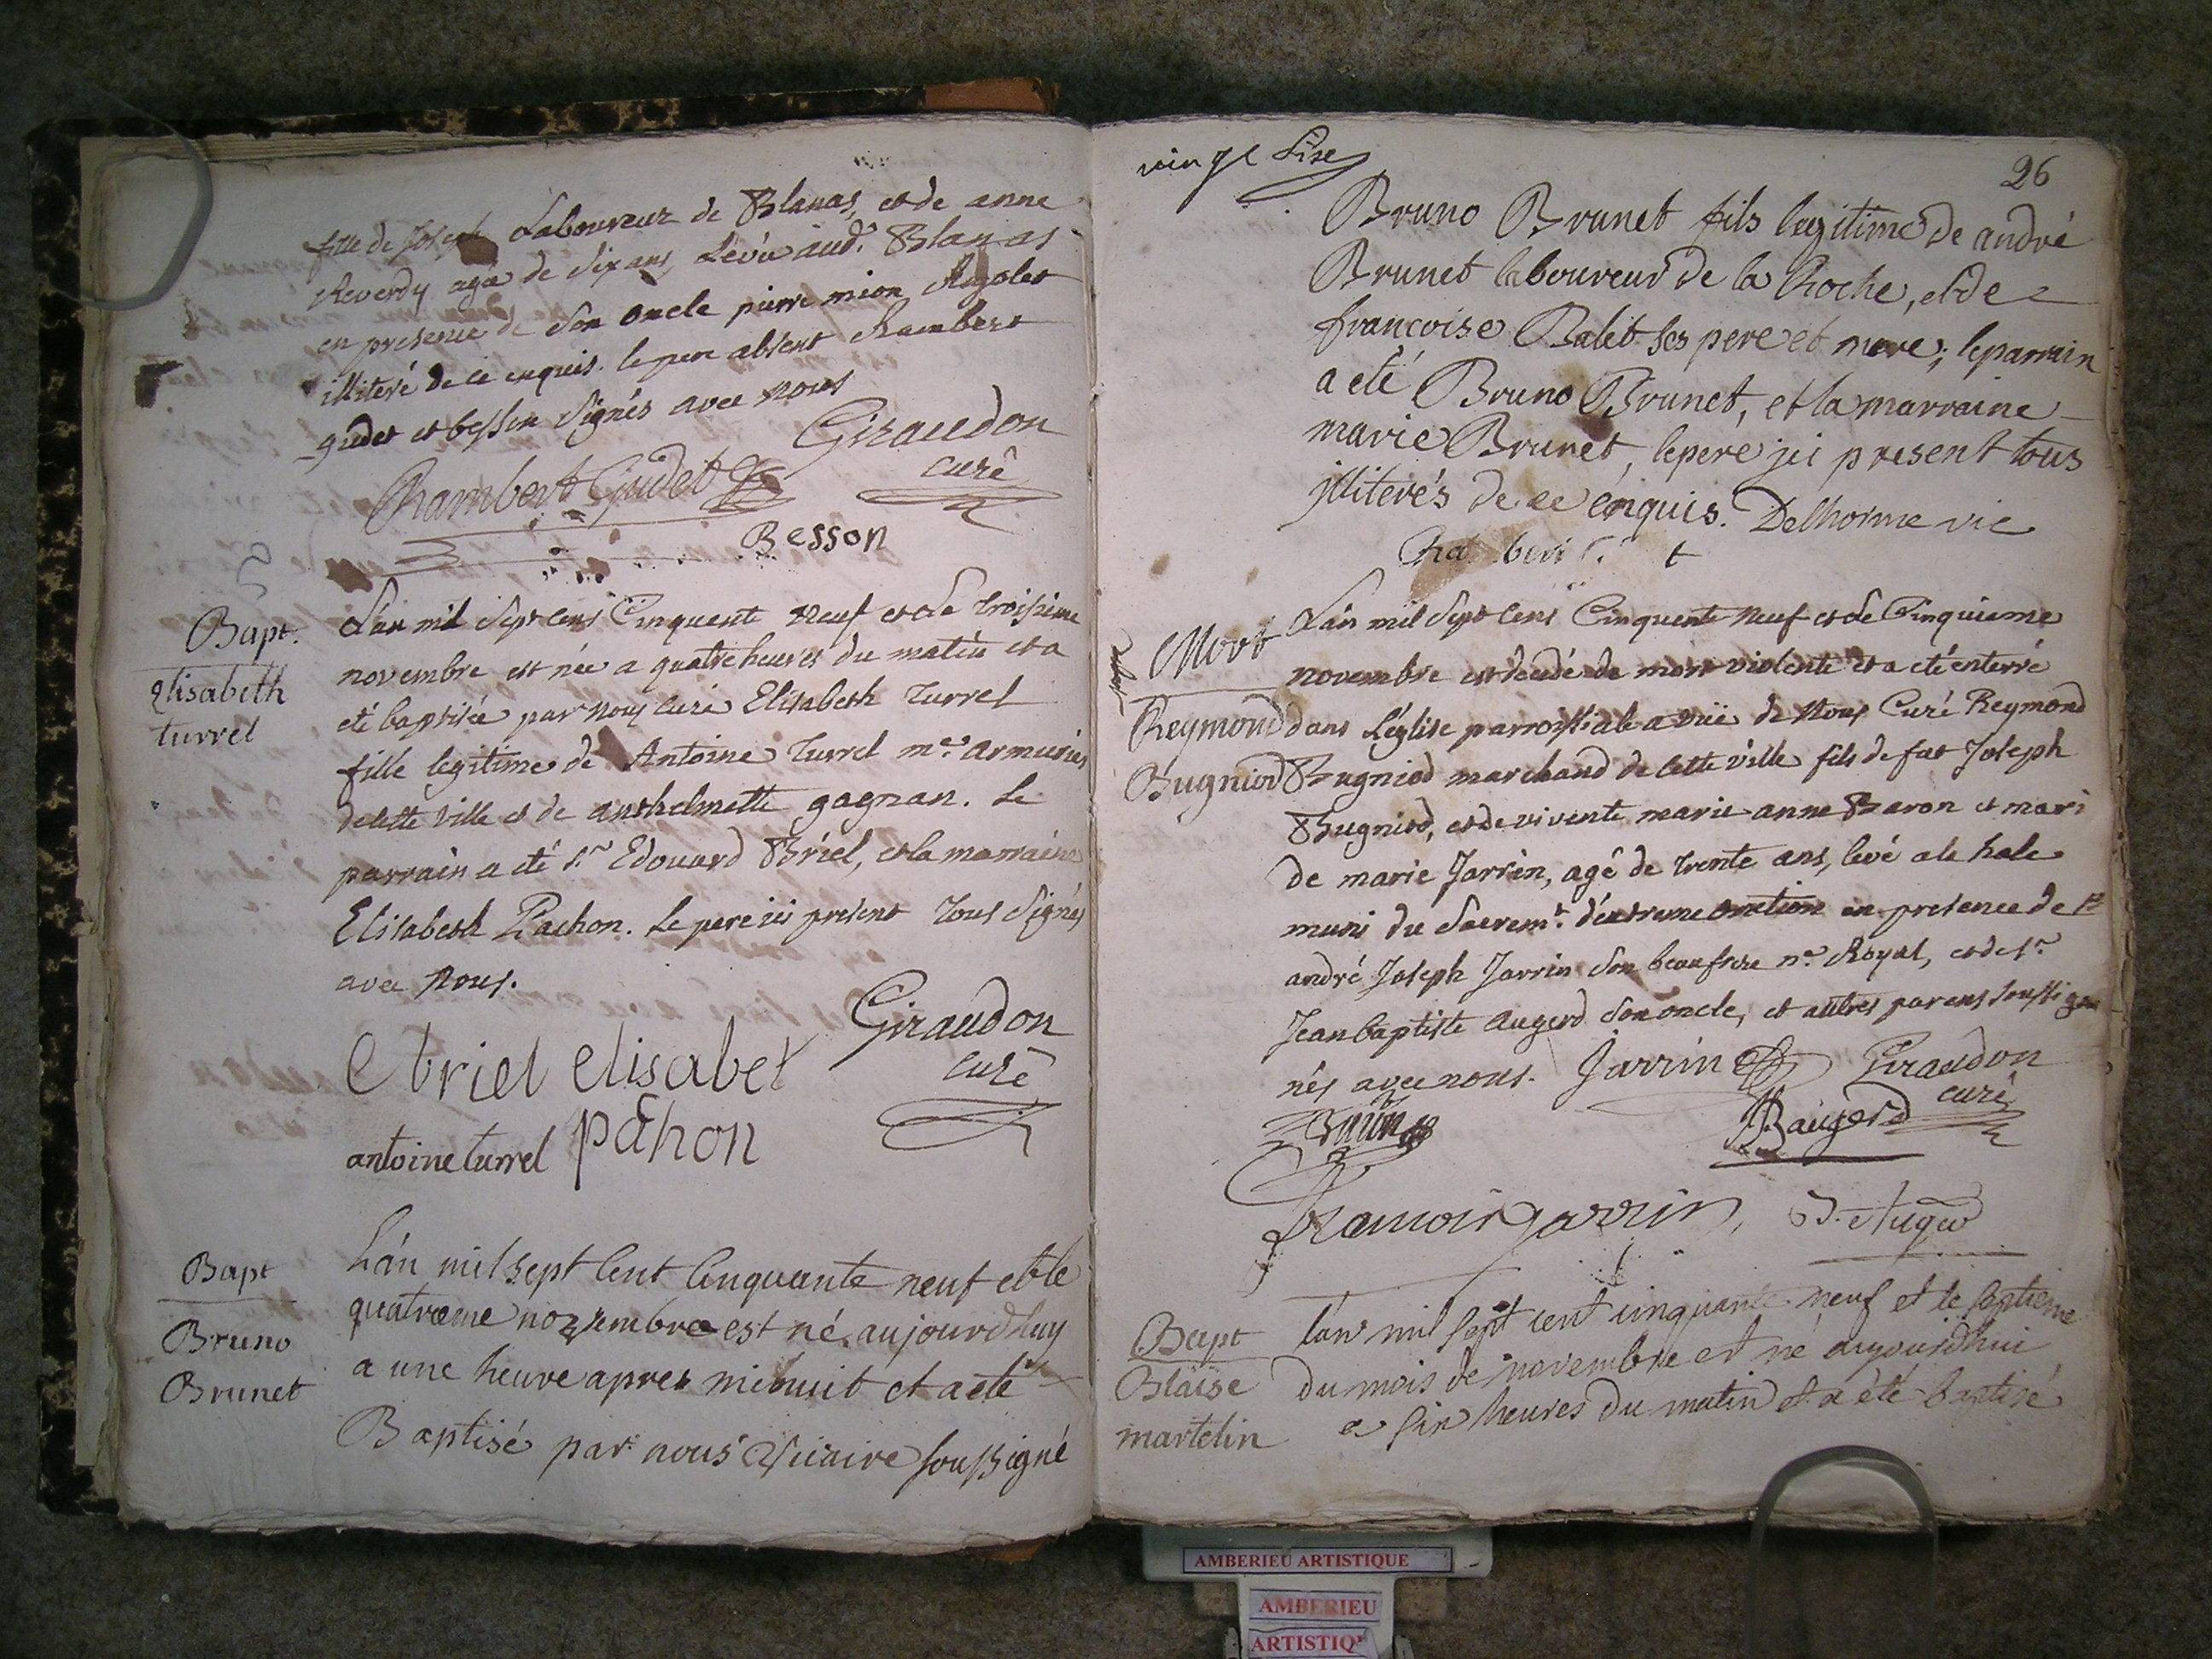 fille de Joseph Laboureur de Blanas, et de anne
Reverdy agée de Six ans, Levée aud.t Blanas
en presence de Son oncle pierre mion Rigolet
illiteré de ce enquis. le pere absent Chambert
gudet et besson Signés avec nous
Giraudon
curé
Chambert Gudet
Besson
Bapt.
Elisabeth
turrel
L'an mil Sept cens Cinquente Neuf et Le troisième
novembre est née a quatre heures du matin et a
eté baptisée par Nous curé Elisabeth Turrel
fille legitime de Antoine Turrel m.e armurier
de cette ville et de anthelmette gagnan. Le
parrain a eté s.r Edouard Briel, et la marraine
Elisabeth Pachon. Le pere ici present Tous Signés
avec Nous.
Giraudon
curé
E briel elisabet
antoine turrel pahon
Bapt
Bruno
Brunet
L'an mil sept cent cinquante neuf et le
quatrieme novembre est né aujourdhuy
a une heure apres minuit et a eté
Baptisé par nous Vicaire soussigné
vingt Sise
26
Bruno Brunet fils legitime de andré
Brunet laboureur de la Roche, et de
francoise Balet ses pere et mere; le parrain
a eté Bruno Brunet, et la marraine
marie Brunet, le pere ici present tous
illiterés de ce enquis. Delhorme vic
Mort
Reymond
Bugniod
L'an mil Sept Cens Cinquente Neuf et Le Cinquieme
novembre est decedé de mort violente et a eté enterré
dans L'église parroissiale a vüe de Nous Curé Reymond
Bugniod marchand de cette ville fils de fut Joseph
Bugniod, et de vivente marie anne Baron et mari
de marie Jarrin, agé de trente ans, levé a la hale
muni du Sacrem.t d'extreme onction en presence de s.r
andré Joseph Jarrin Son beaufrere n.re Royal, et de s.r
Jean baptiste augerd Son oncle, et autres parens soussig
nés avec nous. Jarrin Giraudon
curé
Baugerd
francois jarrin,
Bapt
Blaise
martelin
L'an mil sept cent cinquante neuf et le septieme
du mois de novembre est né aujourdhui
a six heures du matin et a été baptisé
AMBERIEU ARTISTIQUE
AMBERIEU
ARTISTIQ